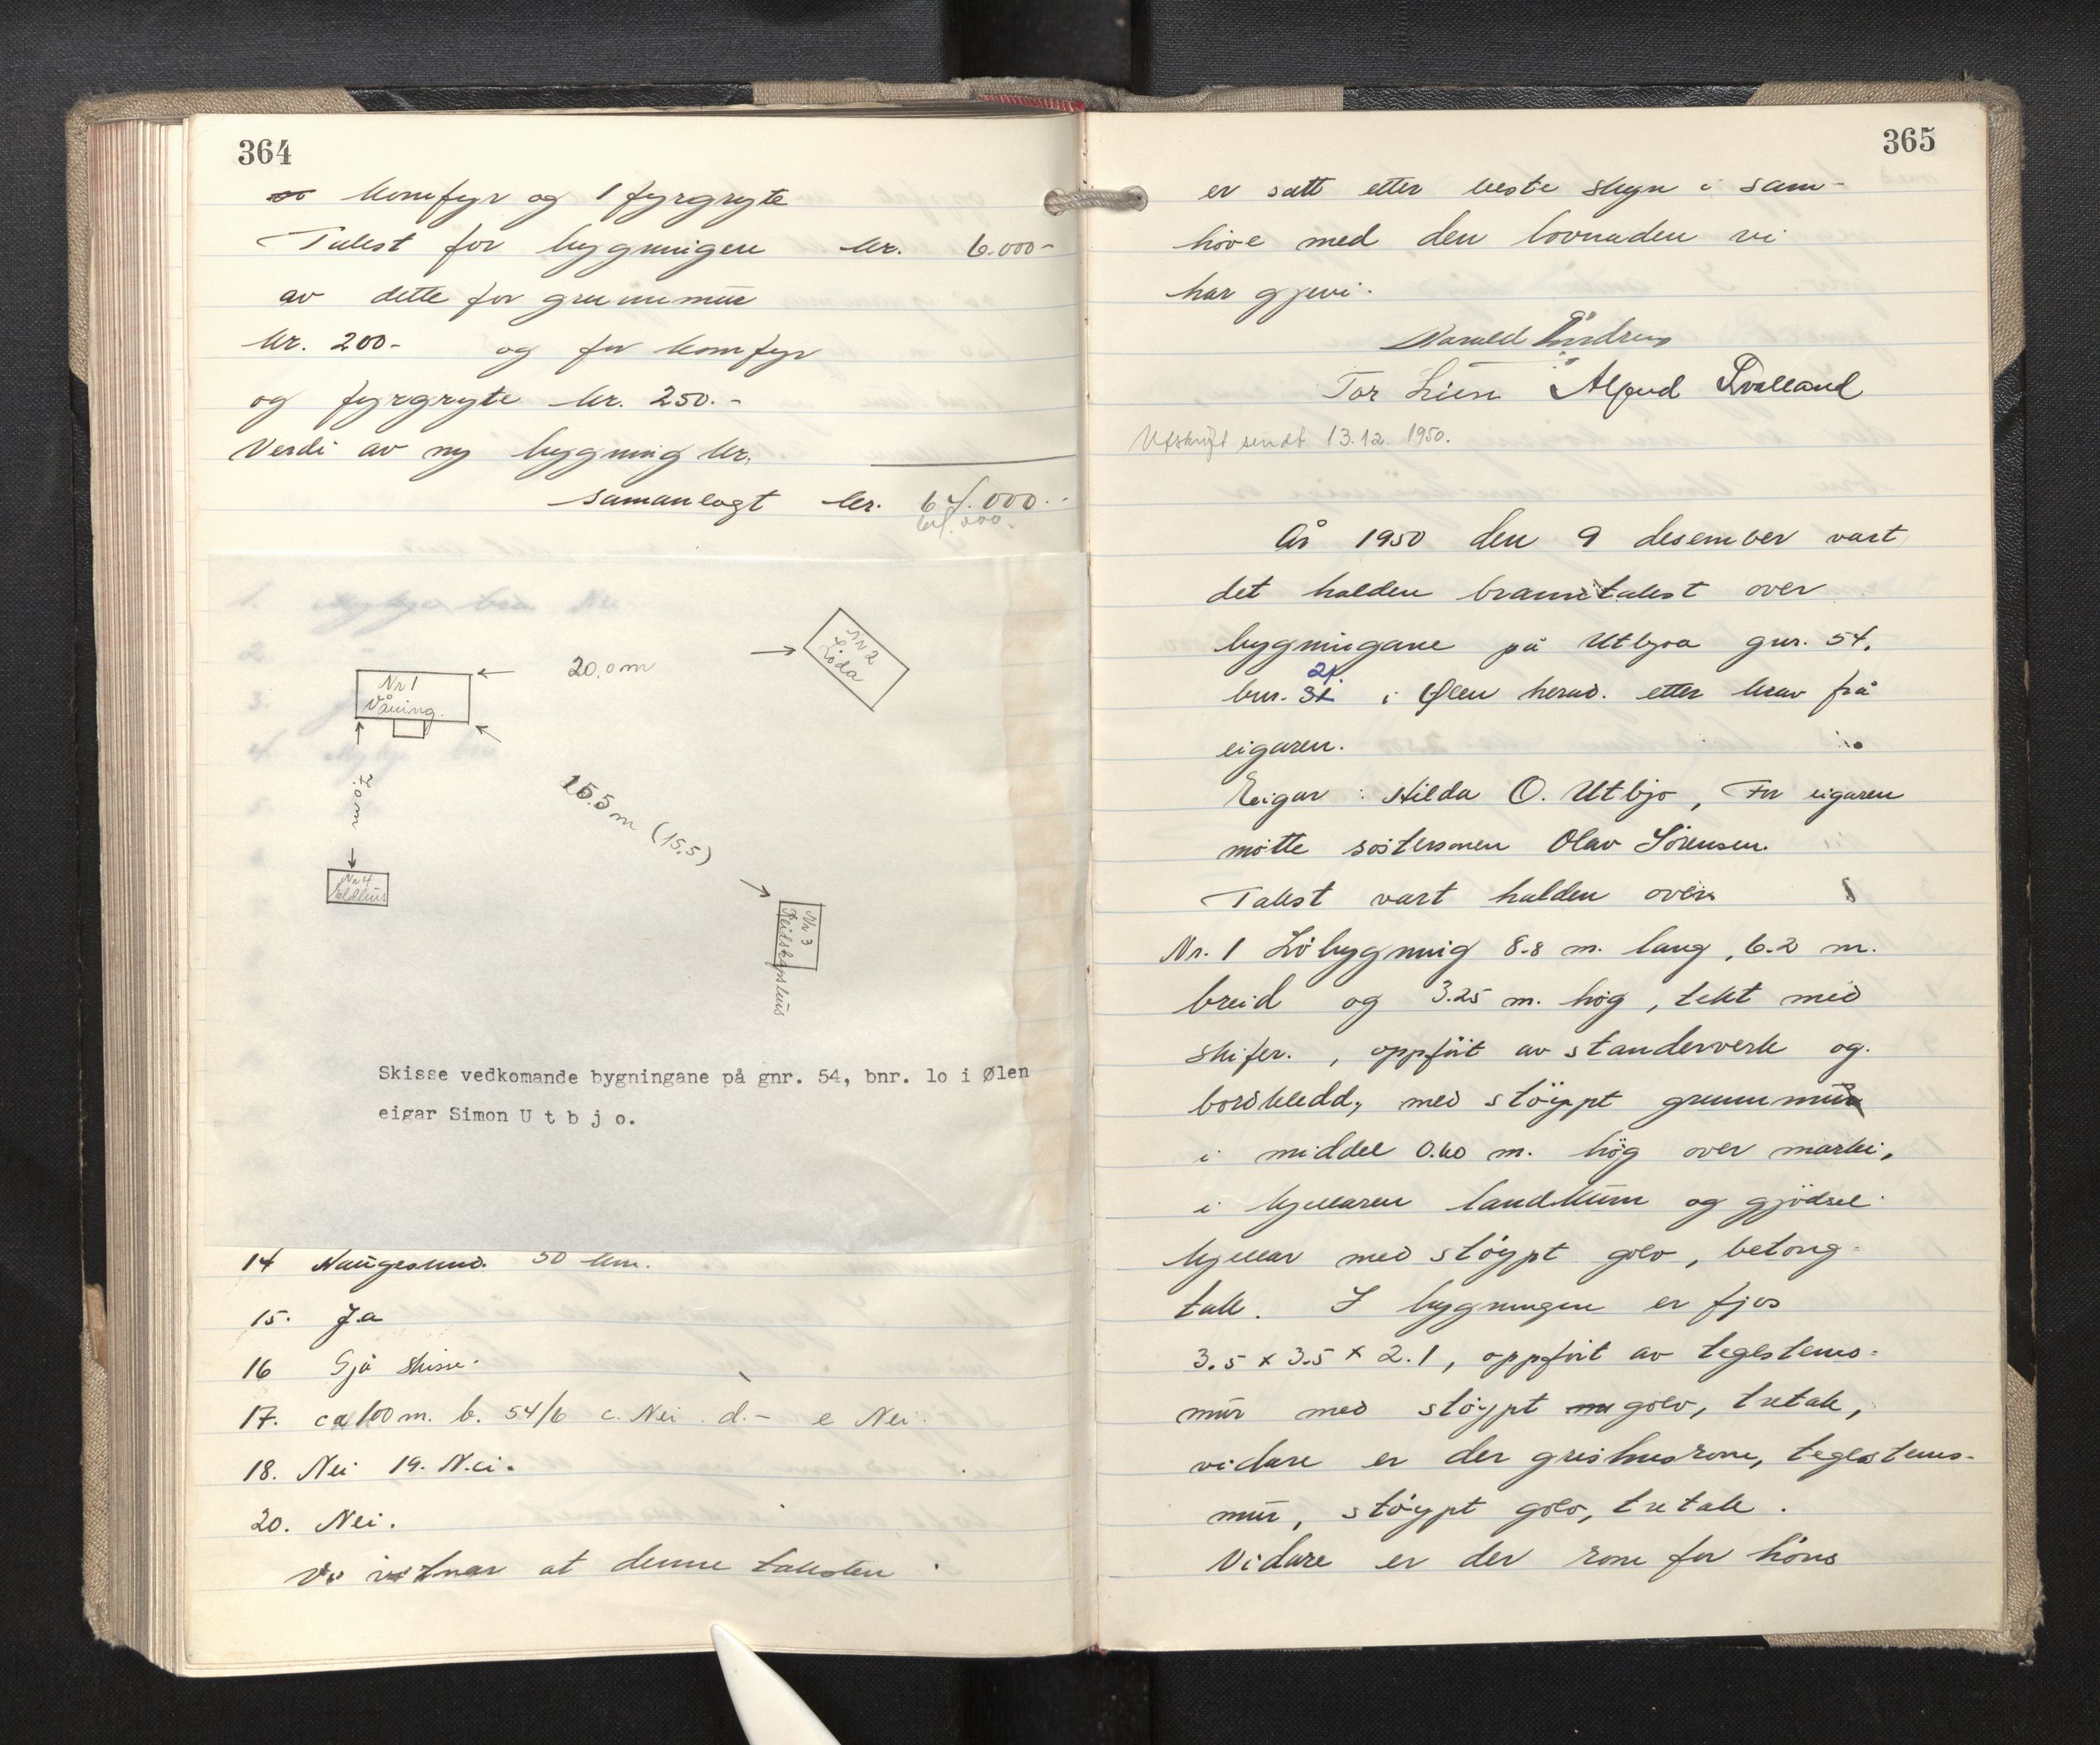 364
komfyr og 1 fyrgryte
Takst for bygningen kr. 6.000-
av dette for grunnmur
kr. 200- og for komfyr
og fyrgryte kr. 250.-
Verdi av ny bygning kr.
samanlagt kr. 64.000.-
64.000.-
Nr 1
Våning.
20,0 m
Nr 2
Löda
7,0 m
15.5 m (15,5)
Nr 4
Eldhus
Nr 3
Reidskapshus
Skisse vedkomande bygningane på gnr. 54, bnr. lo i Ølen
eigar Simon U t b j o.
14 Haugesund. 50 km.
15. Ja
16 Sjå skisse.
17. ca 100 m. b. 54/6 c. Nei. d. - e Nei.
18. Nei 19. Nei.
20. Nei.
Vi vitnar at denne taksten
365
er satt etter beste skyn i sam-
höve med den lovnaden vi
har gjevi.
Harald
Tor Lien Alfred
Utskrift sendt 13.12. 1950.
År 1950 den 9 desember vart
det halden branntakst over
bygningane på Utbjoa gnr. 54,
bnr. 21 i Ølen herad. etter krav frå
eigaren.
Eigar: Hilda O. Utbjo, For eigaren
mötte sosteronen Olav Sörensen.
Takst vart halden over
Nr. 1 Löbygning 8.8 m. lang, 6.2 m.
breid og 3.25 m. hög, tekt med
skifer., oppfört av standerverk og
bordkledd, med stöypt grunnmur
i middel 0.60 m. hög over marki,
i kjellaren landkum og gjödsel-
kjellar med stöypt golv, betong-
tak. I bygningen er fjos
3.5 x 3.5 x 2.1, oppfört av teglsteins-
mur med stöypt golv, tretak,
vidare er der grishusrom, teglsteins-
mur, stöypt golv, tretak.
Vidare er der rom for höns